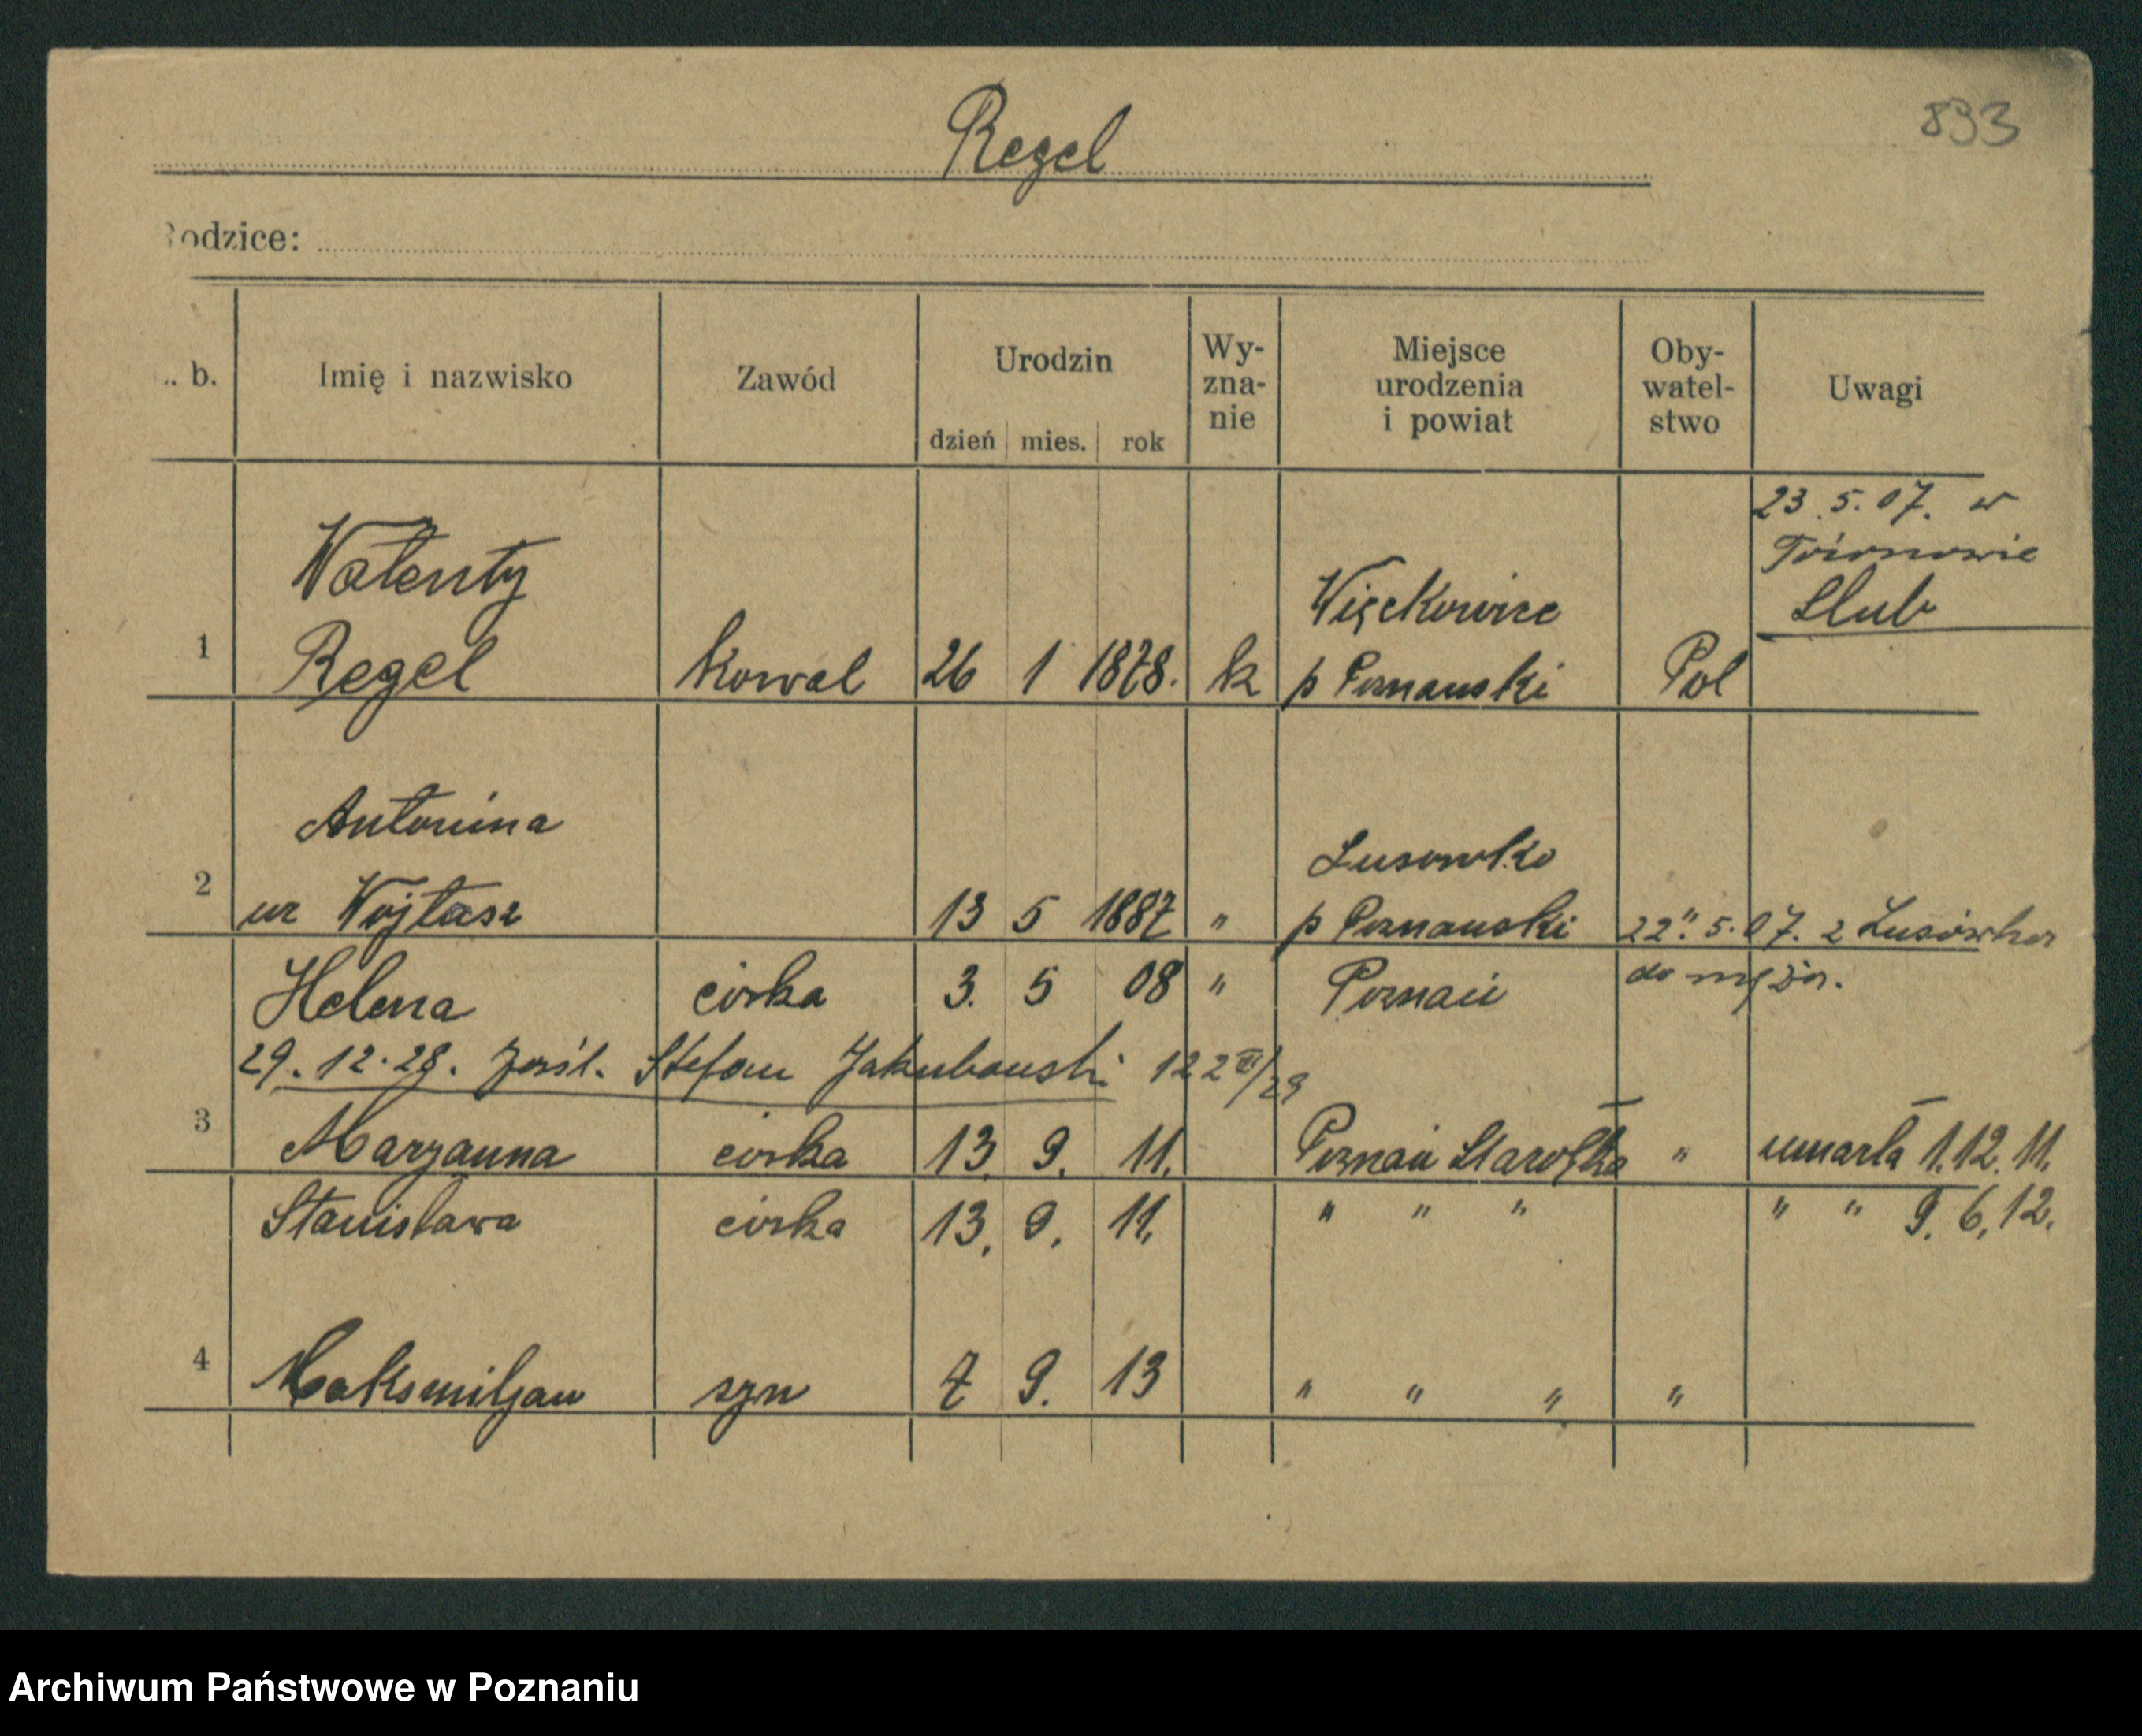 833
Regel
Rodzice:
L. b. Imię i nazwisko Zawód Urodzin dzień mies. rok Wy-zna-nie Miejsce urodzenia i powiat Oby-watel-stwo Uwagi
23.5.07. w
Ślub
1 Walenty Regel Kowal 26 1 1878. k Więckowice p Poznański Pol
2 Antonina ur Wojtasz 13 5 1887 " Lusowko p Poznański " 22.5.07. z Lusówka
do męża.
Helena córka 3. 5 08 " Poznań
29.12.28. pośl. Stefan Jakubowski 122
3 Maryanna córka 13 9. 11. Poznań Starołęka " umarła 1.12.11.
Stanisława córka 13. 9. 11. " " " " " 9.6.12.
4 Maksmiljan syn 7 9. 13 " " " "
Archiwum Państwowe w Poznaniu